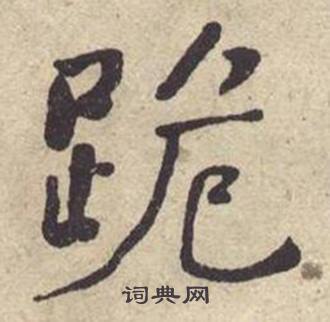 跪
词典网